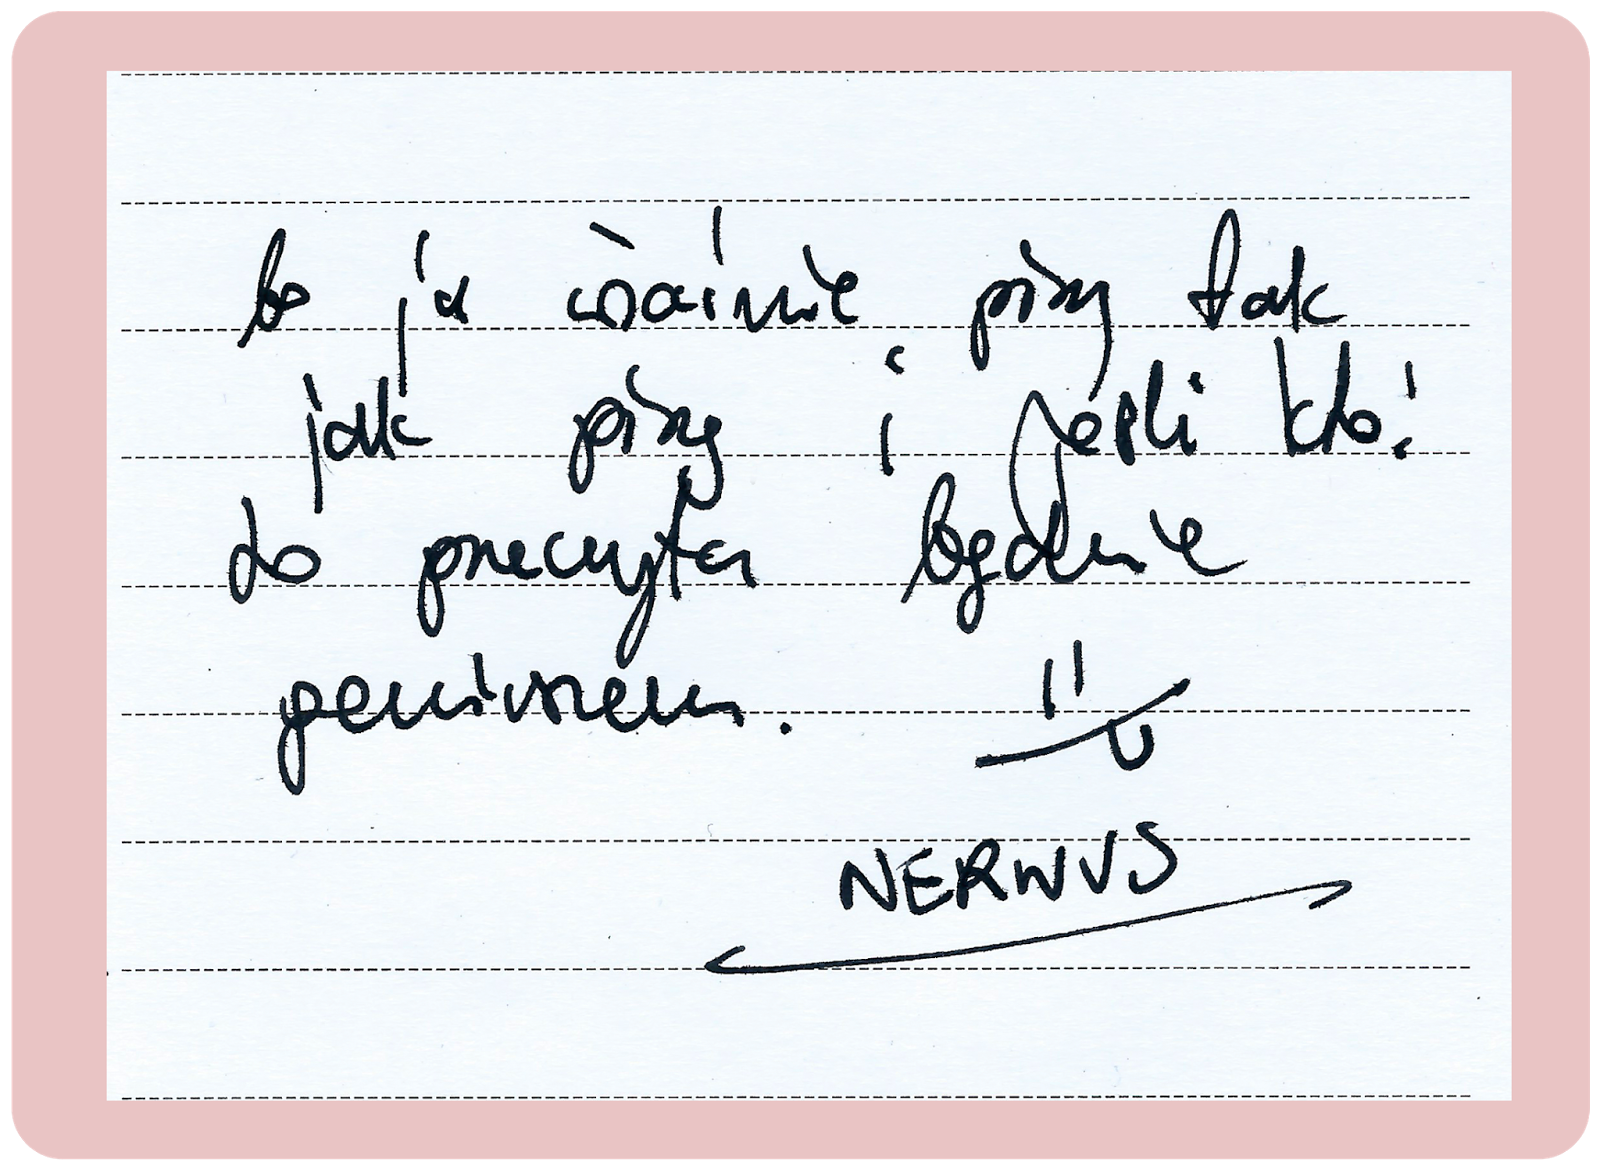 bo ja właśnie piszę tak
jak piszę i jeśli ktoś
to przeczyta będzie
geniuszem.
NERWUS